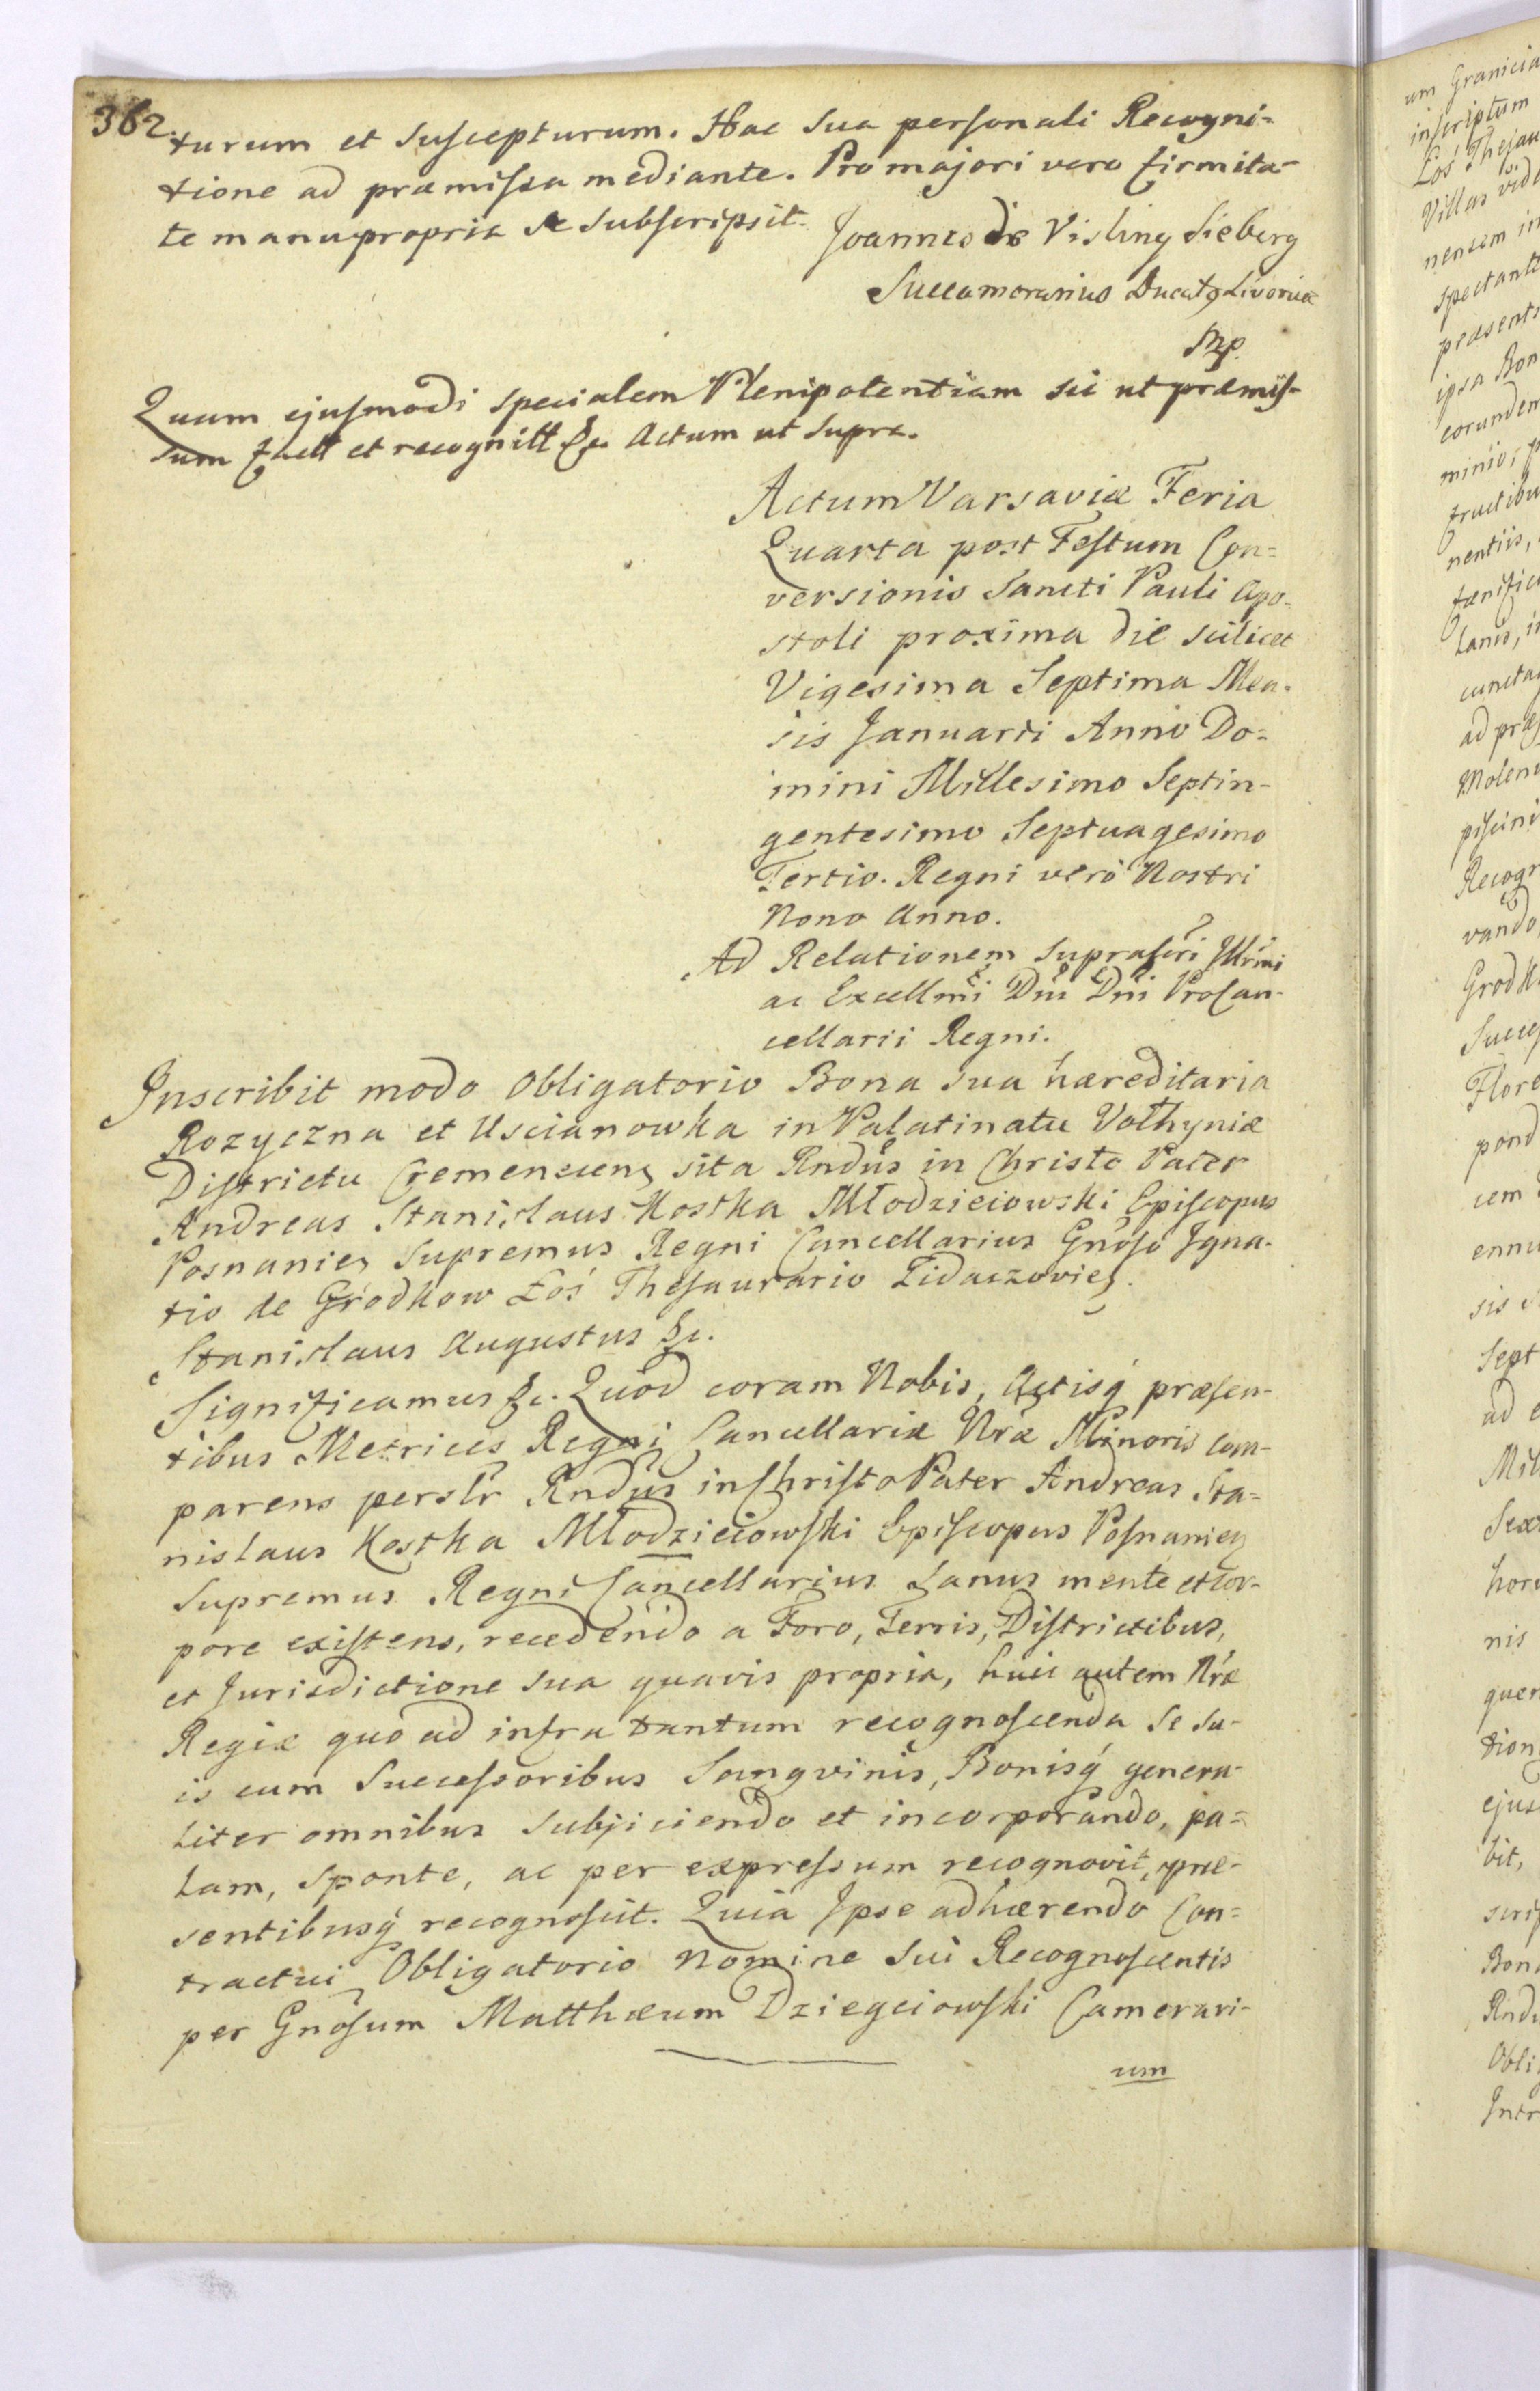 362.
turum et suscepturum. Hac sua personali Recogni=
tione ad præmissa mediante. Pro majori vero firmita-
te manu propria se subscripsit.
Joannes de Visling Sieberg
Succamerarius Ducatg Livoniæ
Mp.
Quam ejusmodi specialem Plenipotentiam sic ut præmis-
sum facit et recognitt &c. Actum ut supra.
Actum Varsaviæ Feria
Quarta post Festum Con=
versionis Sancti Pauli Apo=
stoli proxima die scilicet
Vigesima Septima Men-
sis Januarii Anno Do=
mini Millesimo Septin-
gentesimo Septuagesimo
Tertio. Regni verò Nostri
Nono Anno.
Ad Relationem suprascri Illrmi
ac Excellmi Dni Dni ProCan-
cellarii Regni.
Inscribit modo Obligatorio Bona sua hæreditaria
Rozyczna et Uscianowka in Palatinatu Volhyniæ
Districtu Cremenecen, sita Rndus in Christo Pater
Andreas Stanislaus Kostka Młodzieiowski Episcopus
Posnanien, Supremus Regni Cancellarius Gnoso Igna-
tio de Gródkow Łoś Thesaurario Zidaczovien,.
Stanislaus Augustus &c.
Significamus &c. Quod coram Nobis, Actisq́ præsen-
tibus Metrices Regni Cancellariæ Nræ Minoris com-
parens perslr Rndus in Christo Pater Andreas Sta=
nislaus Kostka Młodzieiowski Episcopus Posnanien,
Supremus Regni Cancellarius Sanus mente et cor-
pore existens, recedendo a Foro, Terris, Districtibus,
et Jurisdictione sua quavis propria, huic autem Nræ
Regiæ quo ad infra tantum recognoscenda se su-
is cum Successoribus Sangvinis, Bonisq́ genera-
liter omnibus subjiciendo et incorporando, pa=
lam, sponte, ac per expressum recognovit, præ-
sentibusq́ recognoscit. Quia Ipse adhærendo Con=
tractui Obligatorio Nomine sui Recognoscentis
per Gnosum Matthæum Dziegciowski Camerari-
um